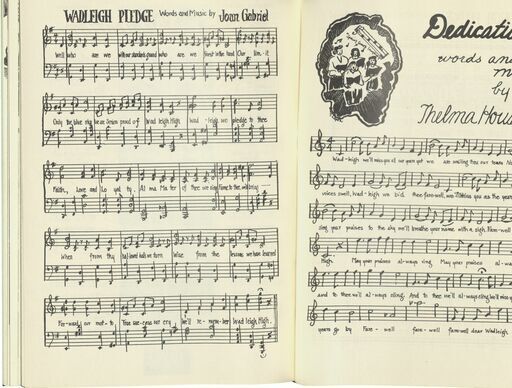 WADLEIGH PLEDGE Words and Music by Joan Gabriel
Well who are we with our standard, grand who are we first in the land Our lim-it
Only the blue sky we are Seniors proud of Wad leigh High wad-leigh we pledge to thee
Faith, Love and Lo yal ty, Al ma Ma ter of thee we sing Fame to thee we'll bring
When from thy hal-lowed halls we turn Wise from the lessons we have learned
For-ward our mot-to True success our cry We'll re-mem-ber Wad leigh High.
Dedicatio
words and
m
by
Thelma Hous
Wad-leigh we'll miss you all we years yet we are smiling thru our tears
voices swell, wad-leigh we bid thee fare-well, as the years
sing your praises to the sky we'll breathe your name with a sigh, Fare-well
High. May your praises al-ways ring May your praises al-wa
and to thee we'll al-ways cling, And to thee we'll al-ways cling
years go by Fare-well fare-well farewell dear Wadleigh